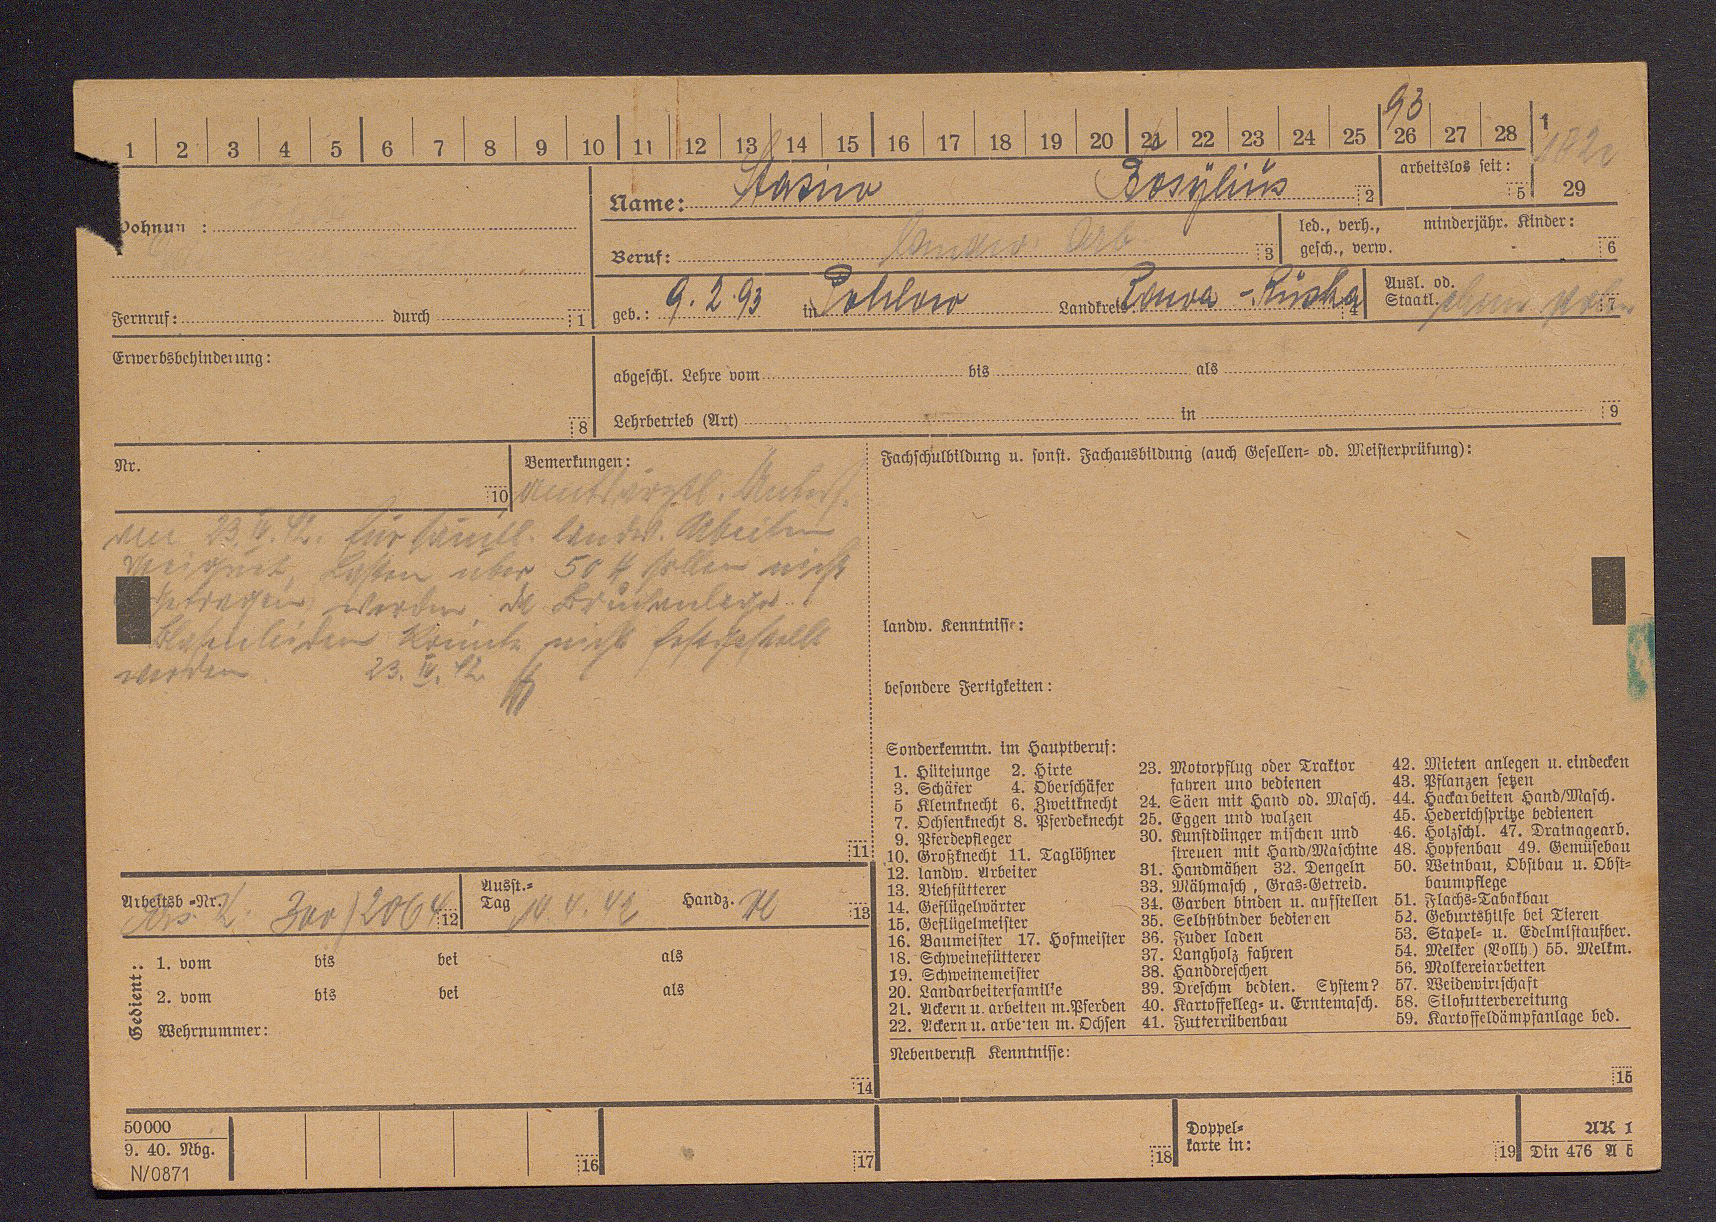 1 2 3 4 5 6 7 8 9 10 11 12 13 14 15 16 17 18 19 20 21 22 23 24 25 26 27 28 1
93
Wohnun :
Name: Stasiw Bosylius 2
arbeitslos seit: 5
29
Beruf: Arb 3
led., verh., minderjähr. Kinder:
gesch., verw. 6
Fernruf: durch 1
geb.: 9.2.93 in Landkreis: Rawa-Ruska 4
Ausl. od.
Staatl. 7
Erwerbsbehinderung: 8
abgeschl. Lehre vom bis als
Lehrbetrieb (Art) in 9
Nr. 10
Bemerkungen:
Amtsärztl. Unters.
am 23.IV.42. für sämtl. landw. Arbeiten
geeignet, Lasten über 50 ℔ sollen nicht
getragen werden da Bruchanlage.
Blasenleiden konnte nicht festgestellt
werden. 23.IV.42
11
Fachschulbildung u. sonst. Fachausbildung (auch Gesellen- od. Meisterprüfung):
landw. Kenntnisse:
besondere Fertigkeiten:
Sonderkenntn. im Hauptberuf:
1. Hütejunge 2. Hirte
3. Schäfer 4. Oberschäfer
5 Kleinknecht 6. Zweitknecht
7. Ochsenknecht 8. Pferdeknecht
9. Pferdepfleger
10. Großknecht 11. Taglöhner
12. landw. Arbeiter
13. Viehfütterer
14. Geflügelwärter
15. Geflügelmeister
16. Baumeister 17. Hofmeister
18. Schweinefütterer
19. Schweinemeister
20. Landarbeiterfamilie
21. Ackern u. arbeiten m. Pferden
22. Ackern u. arbeiten m. Ochsen
23. Motorpflug oder Traktor
fahren und bedienen
24. Säen mit Hand od. Masch.
25. Eggen und walzen
30. Kunstdünger mischen und
streuen mit Hand/Maschine
31. Handmähen 32. Dengeln
33. Mähmasch., Gras-Getreid.
34. Garben binden u. aufstellen
35. Selbstbinder bedienen
36. Fuder laden
37. Langholz fahren
38. Handdreschen
39. Dreschm bedien. System?
40. Kartoffelleg- u. Erntemasch.
41. Futterrübenbau
42. Mieten anlegen u. eindecken
43. Pflanzen setzen
44. Hackarbeiten Hand/Masch.
45. Hederichspritze bedienen
46. Holzschl. 47. Drainagearb.
48. Hopfenbau 49. Gemüsebau
50. Weinbau, Obstbau u. Obst-
baumpflege
51. Flachs-Tabakbau
52. Geburtshilfe bei Tieren
53. Stapel- u. Edelmistaufber.
54. Melker (Vollh.) 55. Melkm.
56. Molkereiarbeiten
57. Weidewirtschaft
58. Silofutterbereitung
59. Kartoffeldämpfanlage bed.
Nebenberufl Kenntnisse: 15
Arbeitsb-Nr. 300/2064 12
Ausst.-
Tag Handz. 13
Gedient:
1. vom bis bei als
2. vom bis bei als
Wehrnummer: 14
50000
9. 40. Nbg.
N/0871
16
17
18
Doppel-
karte in: 19
AK 1
Din 476 A 5